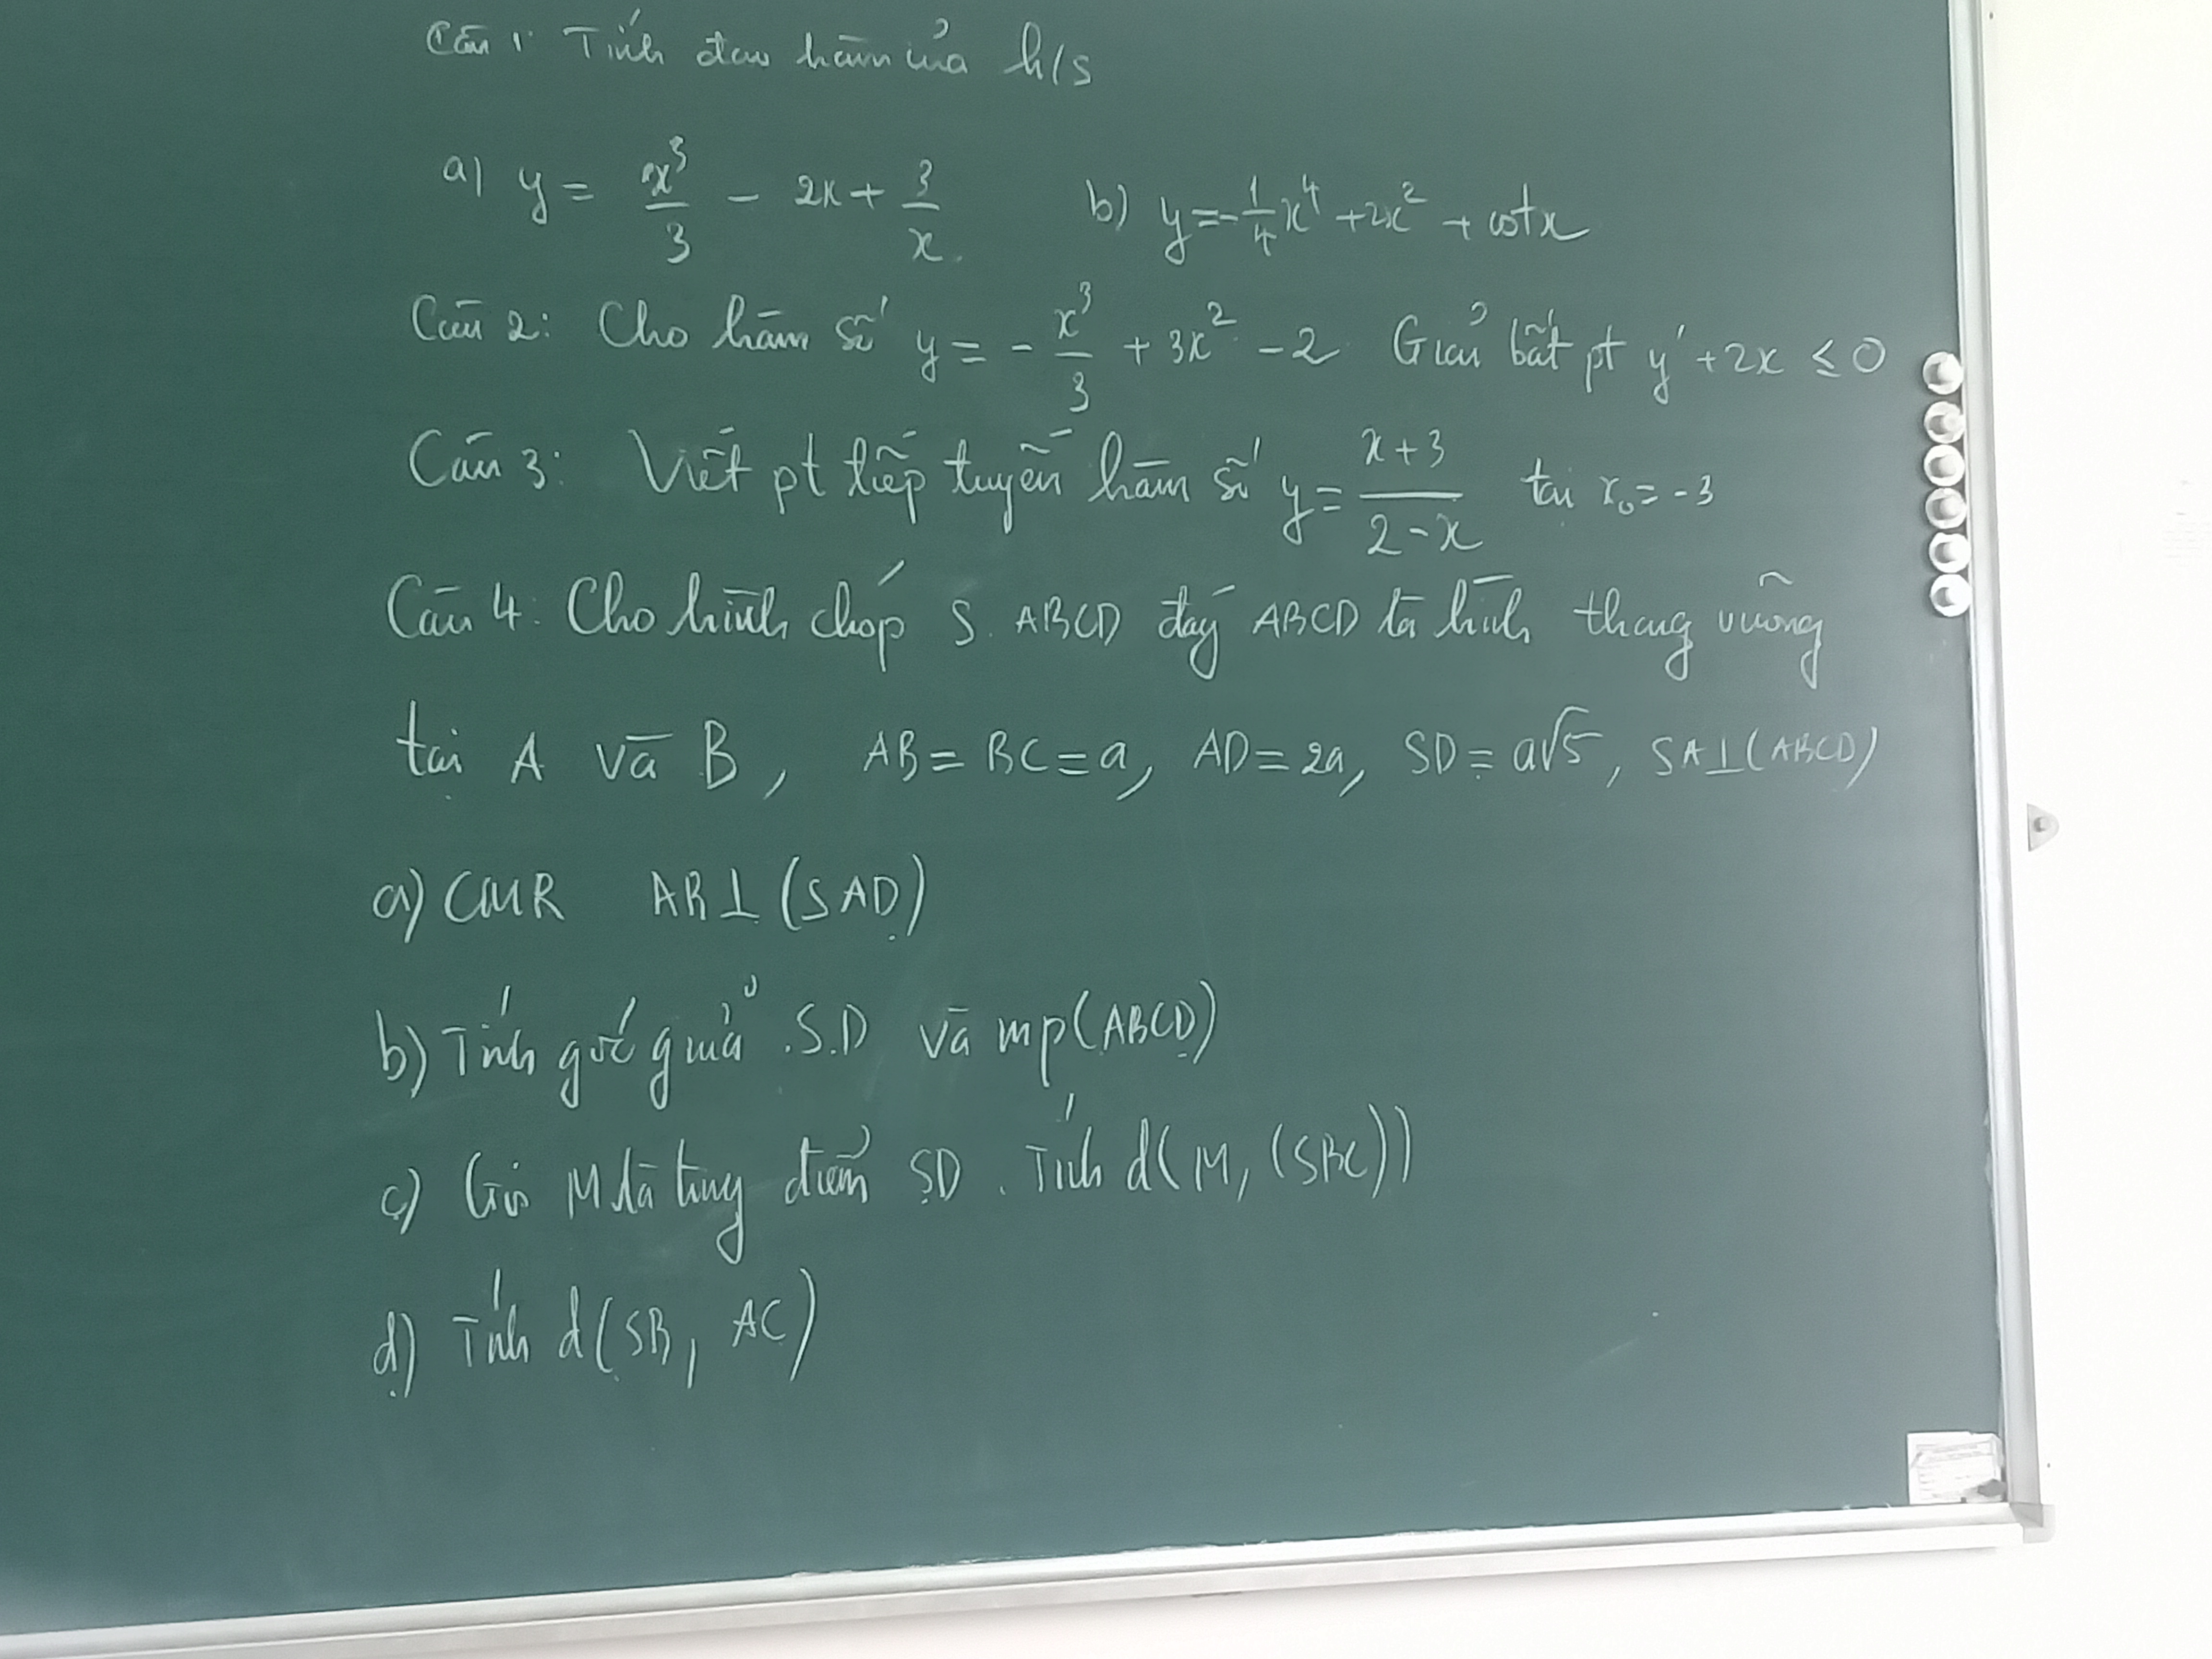 Câu 1: Tính đạo hàm của h/s
a) y = x³/3 - 2x + 3/x. b) y = -1/4 x⁴ + 2x² + cotx
Câu 2: Cho hàm số y = - x³/3 + 3x² - 2 Giải bất pt y' + 2x ≤ 0
Câu 3: Viết pt tiếp tuyến hàm số y = (x+3)/(2-x) tại x₀ = -3
Câu 4: Cho hình chóp S.ABCD đáy ABCD là hình thang vuông
tại A và B, AB = BC = a, AD = 2a, SD = a√5, SA⊥(ABCD)
a) CMR AB⊥(SAD)
b) Tính góc giữa SD và mp(ABCD)
c) Gọi M là trung điểm SD. Tính d(M, (SBC))
d) Tính d(SB, AC)